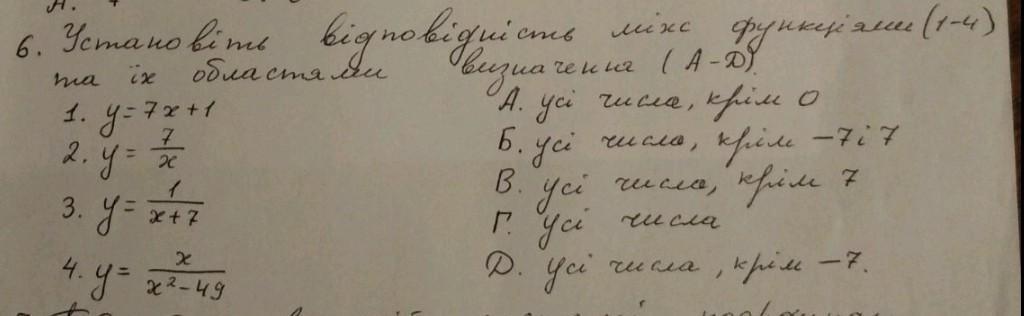 6. Установіть відповідність між функціями (1-4)
та їх областями визначення (А-Д).
1. y=7x+1
А. усі числа, крім 0
2. y= 7/x
Б. усі числа, крім -7 і 7
3. y= 1/(x+7)
В. усі числа, крім 7
Г. усі числа
4. y= x/(x²-49)
Д. усі числа, крім -7.